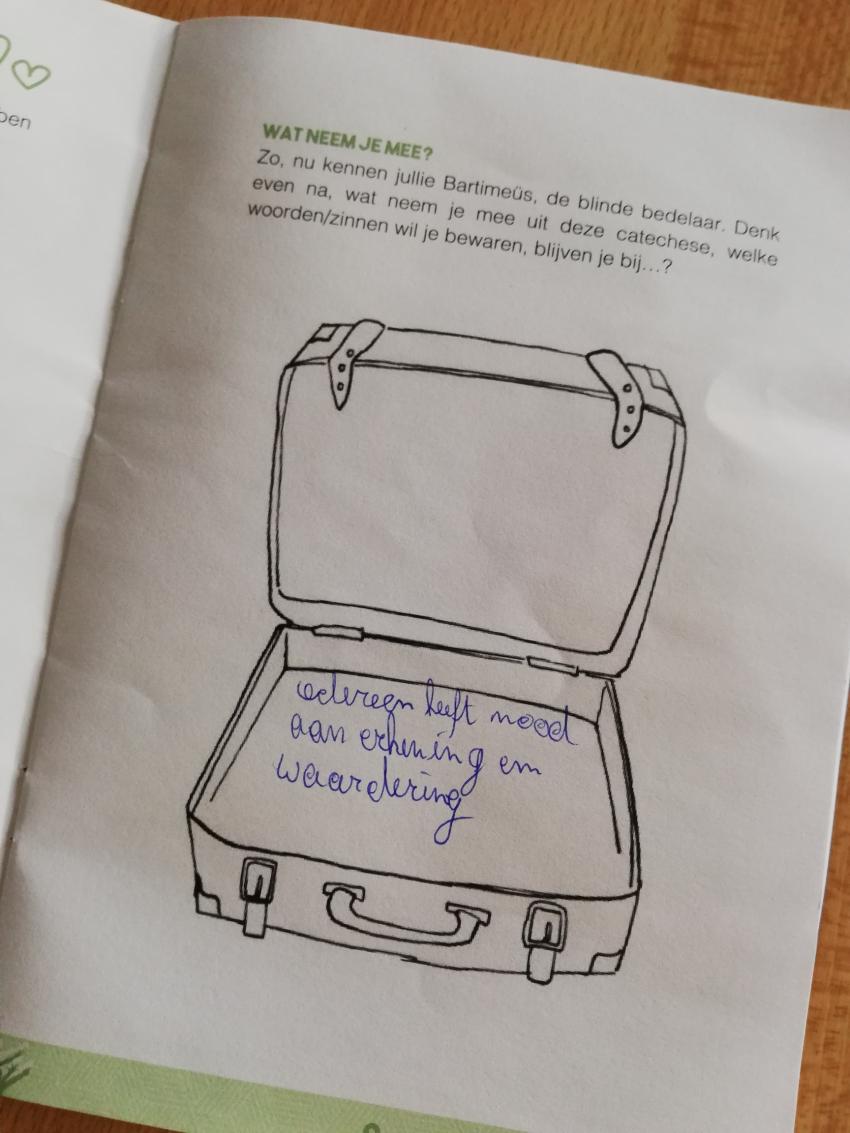 ben
WAT NEEM JE MEE?
Zo, nu kennen jullie Bartimeüs, de blinde bedelaar. Denk
even na, wat neem je mee uit deze catechese, welke
woorden/zinnen wil je bewaren, blijven je bij...?
iedereen heeft nood
aan erkening en
waardering